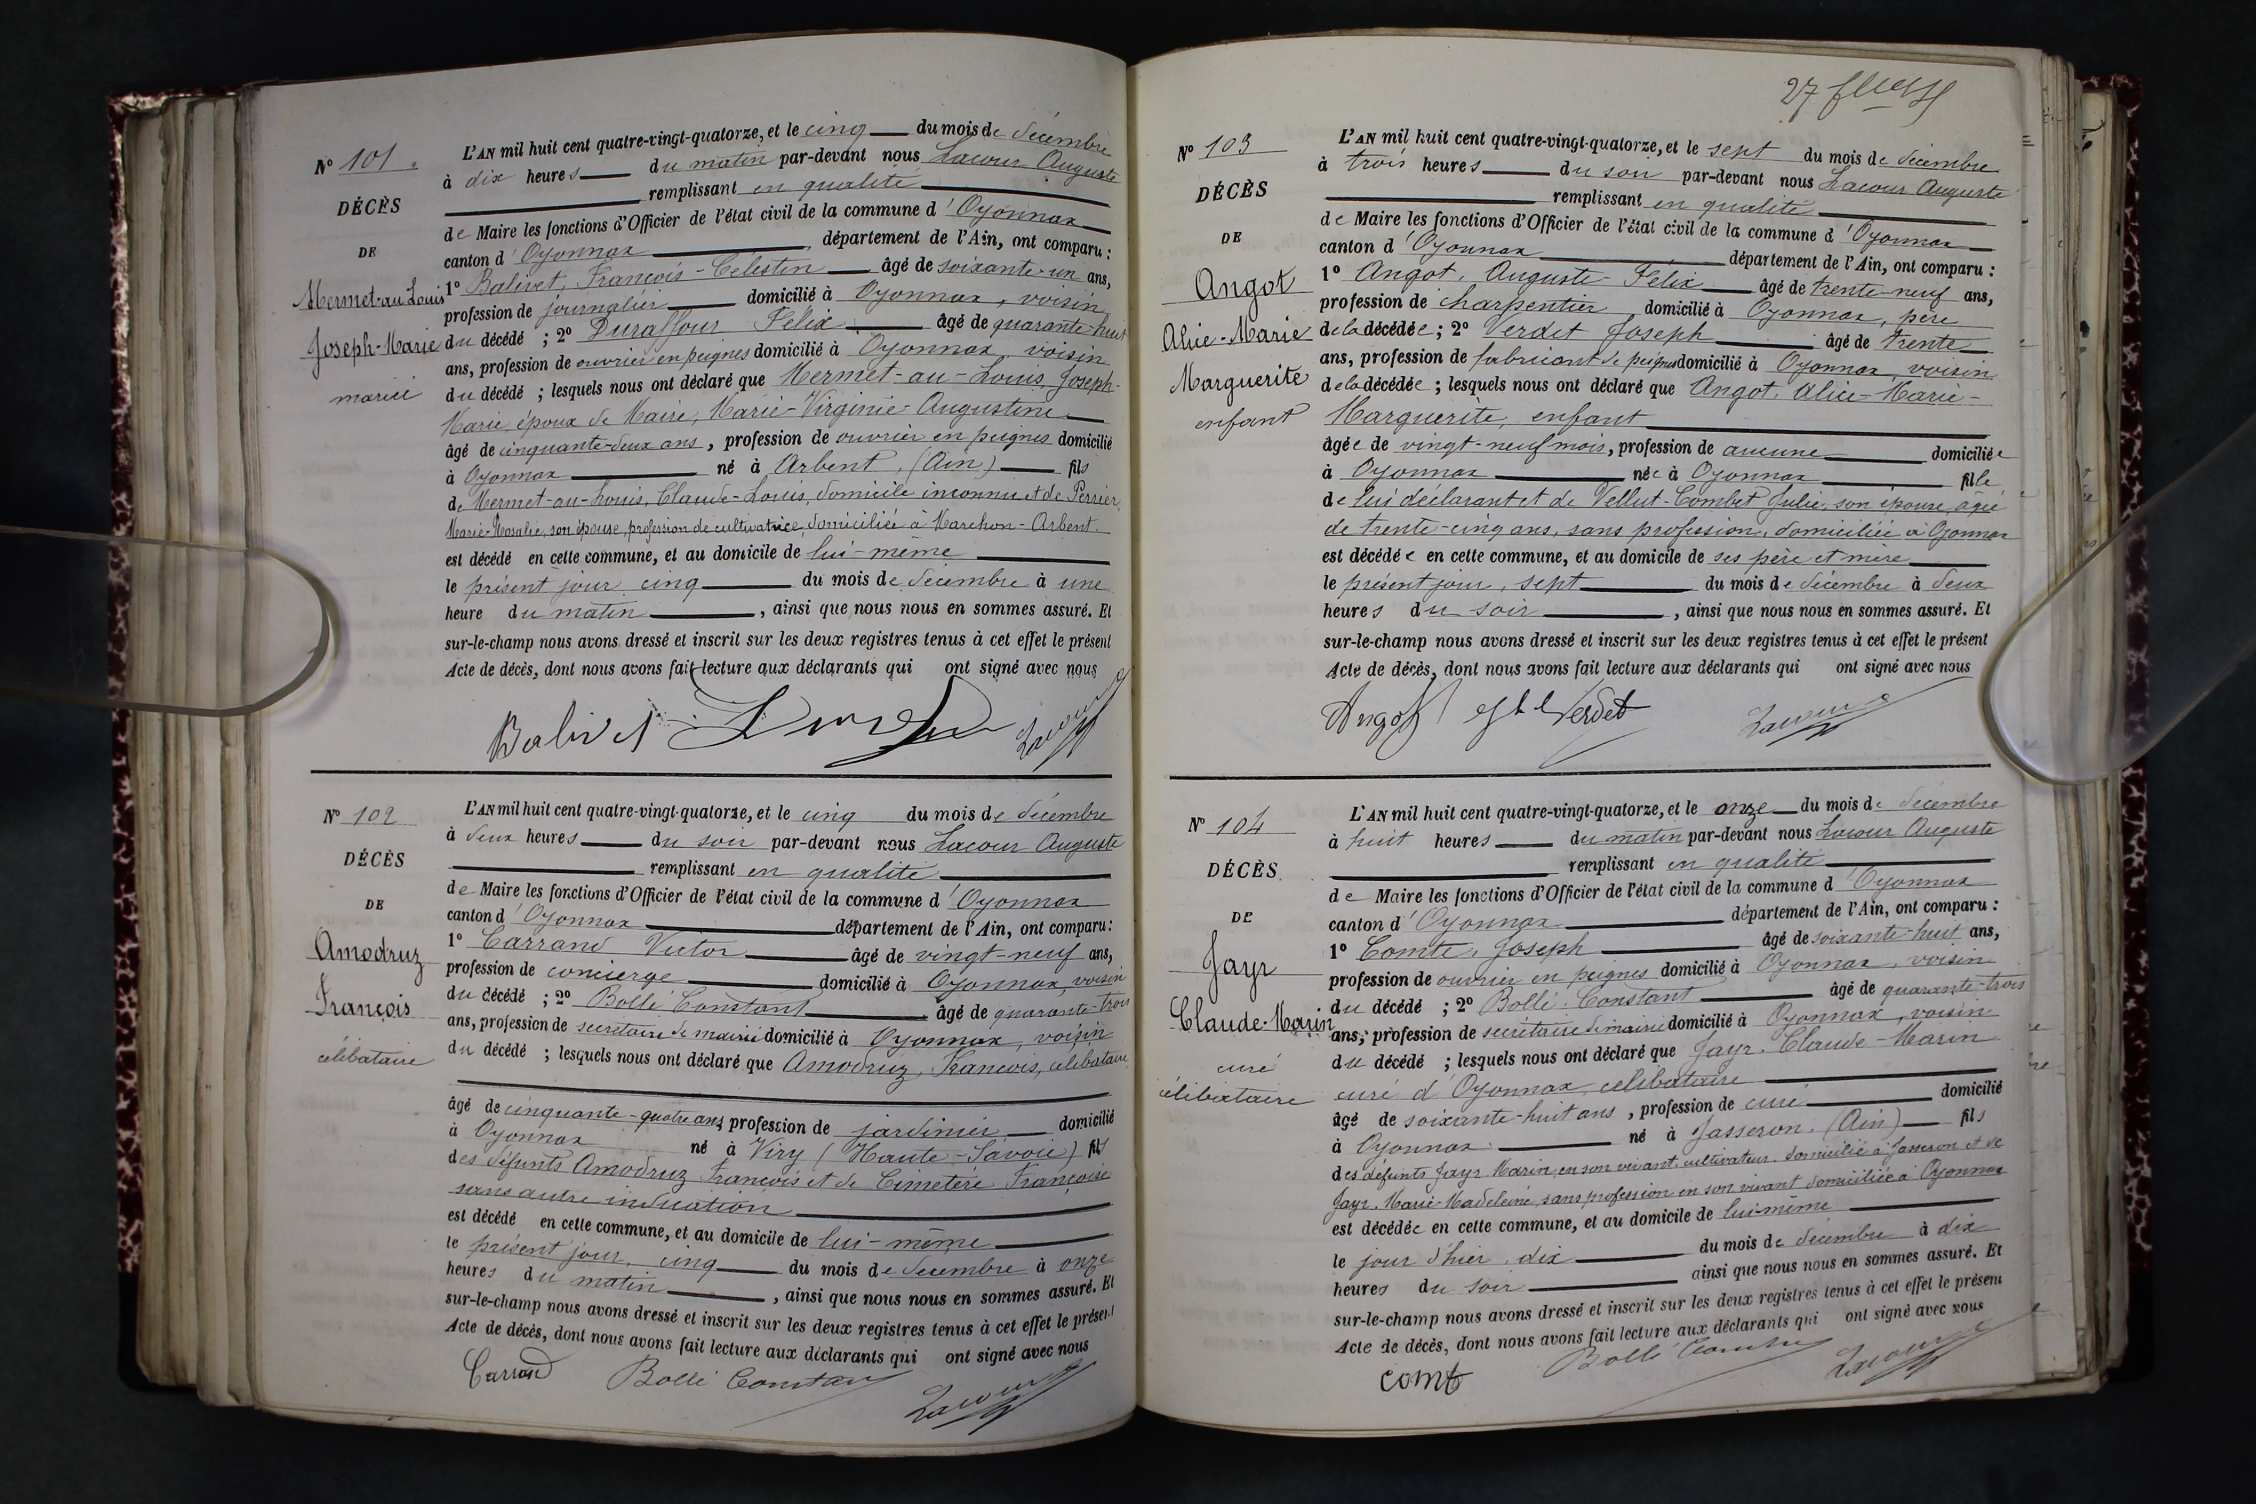 N° 101.
DÉCÈS
DE
Mermet-au-Louis
Joseph-Marie
marié
L'AN mil huit cent quatre-vingt-quatorze, et le cinq du mois de décembre
à dix heures du matin par-devant nous Lacour Auguste
remplissant en qualité
de Maire les fonctions d'Officier de l'état civil de la commune d'Oyonnax
canton d'Oyonnax, département de l'Ain, ont comparu :
1° Balivet, François-Célestin âgé de soixante-un ans,
profession de journalier domicilié à Oyonnax, voisin
du décédé ; 2° Duraffour Félix âgé de quarante-huit
ans, profession de ouvrier en peignes domicilié à Oyonnax voisin
du décédé ; lesquels nous ont déclaré que Mermet-au-Louis, Joseph-
Marie, époux de Maire, Marie-Virginie-Augustine
âgé de cinquante-deux ans, profession de ouvrier en peignes domicilié
à Oyonnax né à Arbent, (Ain) fils
de Mermet-au-Louis, Claude-Louis, domicile inconnu et de Perrier
Marie-Rosalie, son épouse, profession de cultivatrice, domiciliée à Marchon-Arbent.
est décédé en cette commune, et au domicile de lui-même
le présent jour cinq du mois de décembre à une
heure du matin, ainsi que nous nous en sommes assuré. Et
sur-le-champ nous avons dressé et inscrit sur les deux registres tenus à cet effet le présent
Acte de décès, dont nous avons fait lecture aux déclarants qui ont signé avec nous
Balivet Lacour
N° 102
DÉCÈS
DE
Amodruz
François
célibataire
L'AN mil huit cent quatre-vingt-quatorze, et le cinq du mois de décembre
à deux heures du soir par-devant nous Lacour Auguste
remplissant en qualité
de Maire les fonctions d'Officier de l'état civil de la commune d'Oyonnax
canton d'Oyonnax département de l'Ain, ont comparu :
1° Carrand Victor âgé de vingt-neuf ans,
profession de concierge domicilié à Oyonnax, voisin
du décédé ; 2° Bollé Constant âgé de quarante-trois
ans, profession de secrétaire de mairie domicilié à Oyonnax, voisin
du décédé ; lesquels nous ont déclaré que Amodruz, François, célibataire
âgé de cinquante-quatre ans, profession de jardinier domicilié
à Oyonnax né à Viry (Haute-Savoie) fils
des défunts Amodruz François et de Cimetéré Françoise
sans autre indication
est décédé en cette commune, et au domicile de lui-même
le présent jour, cinq du mois de décembre à onze
heures du matin, ainsi que nous nous en sommes assuré. Et
sur-le-champ nous avons dressé et inscrit sur les deux registres tenus à cet effet le présent
Acte de décès, dont nous avons fait lecture aux déclarants qui ont signé avec nous
Carrand Bollé Constant Lacour
27
N° 103
DÉCÈS
DE
Angot
Alice-Marie
Marguerite
enfant
L'AN mil huit cent quatre-vingt-quatorze, et le sept du mois de décembre
à trois heures du soir par-devant nous Lacour Auguste
remplissant en qualité
de Maire les fonctions d'Officier de l'état civil de la commune d'Oyonnax
canton d'Oyonnax département de l'Ain, ont comparu :
1° Angot, Auguste-Félix âgé de trente-neuf ans,
profession de charpentier domicilié à Oyonnax, père
de la décédée ; 2° Verdet Joseph âgé de trente
ans, profession de fabricant de peignes domicilié à Oyonnax, voisin
de la décédée ; lesquels nous ont déclaré que Angot, Alice-Marie-
Marguerite, enfant
âgée de vingt-neuf mois, profession de aucune domiciliée
à Oyonnax née à Oyonnax fille
de lui déclarant et de Vellut-Combet Julie, son épouse, âgée
de trente-cinq ans, sans profession, domiciliée à Oyonnax
est décédée en cette commune, et au domicile de ses père et mère
le présent jour, sept du mois de décembre à deux
heures du soir, ainsi que nous nous en sommes assuré. Et
sur-le-champ nous avons dressé et inscrit sur les deux registres tenus à cet effet le présent
Acte de décès, dont nous avons fait lecture aux déclarants qui ont signé avec nous
Angot Verdet Lacour
N° 104
DÉCÈS
DE
Jayr
Claude-Marin
curé
célibataire
L'AN mil huit cent quatre-vingt-quatorze, et le onze du mois de décembre
à huit heures du matin par-devant nous Lacour Auguste
remplissant en qualité
de Maire les fonctions d'Officier de l'état civil de la commune d'Oyonnax
canton d'Oyonnax département de l'Ain, ont comparu :
1° Comte, Joseph âgé de soixante-huit ans,
profession de ouvrier en peignes domicilié à Oyonnax, voisin
du décédé ; 2° Bollé Constant âgé de quarante-trois
ans, profession de secrétaire de mairie domicilié à Oyonnax, voisin
du décédé ; lesquels nous ont déclaré que Jayr, Claude-Marin
curé d'Oyonnax, célibataire
âgé de soixante-huit ans, profession de curé domicilié
à Oyonnax né à Jasseron. (Ain) fils
des défunts Jayr Marin, en son vivant, cultivateur domicilié à Jasseron et de
Jayr, Marie-Madeleine, sans profession en son vivant domiciliée à Oyonnax
est décédée en cette commune, et au domicile de lui-même
le jour d'hier, dix du mois de décembre à dix
heures du soir ainsi que nous nous en sommes assuré. Et
sur-le-champ nous avons dressé et inscrit sur les deux registres tenus à cet effet le présent
Acte de décès, dont nous avons fait lecture aux déclarants qui ont signé avec nous
comt Bollé Constant Lacour